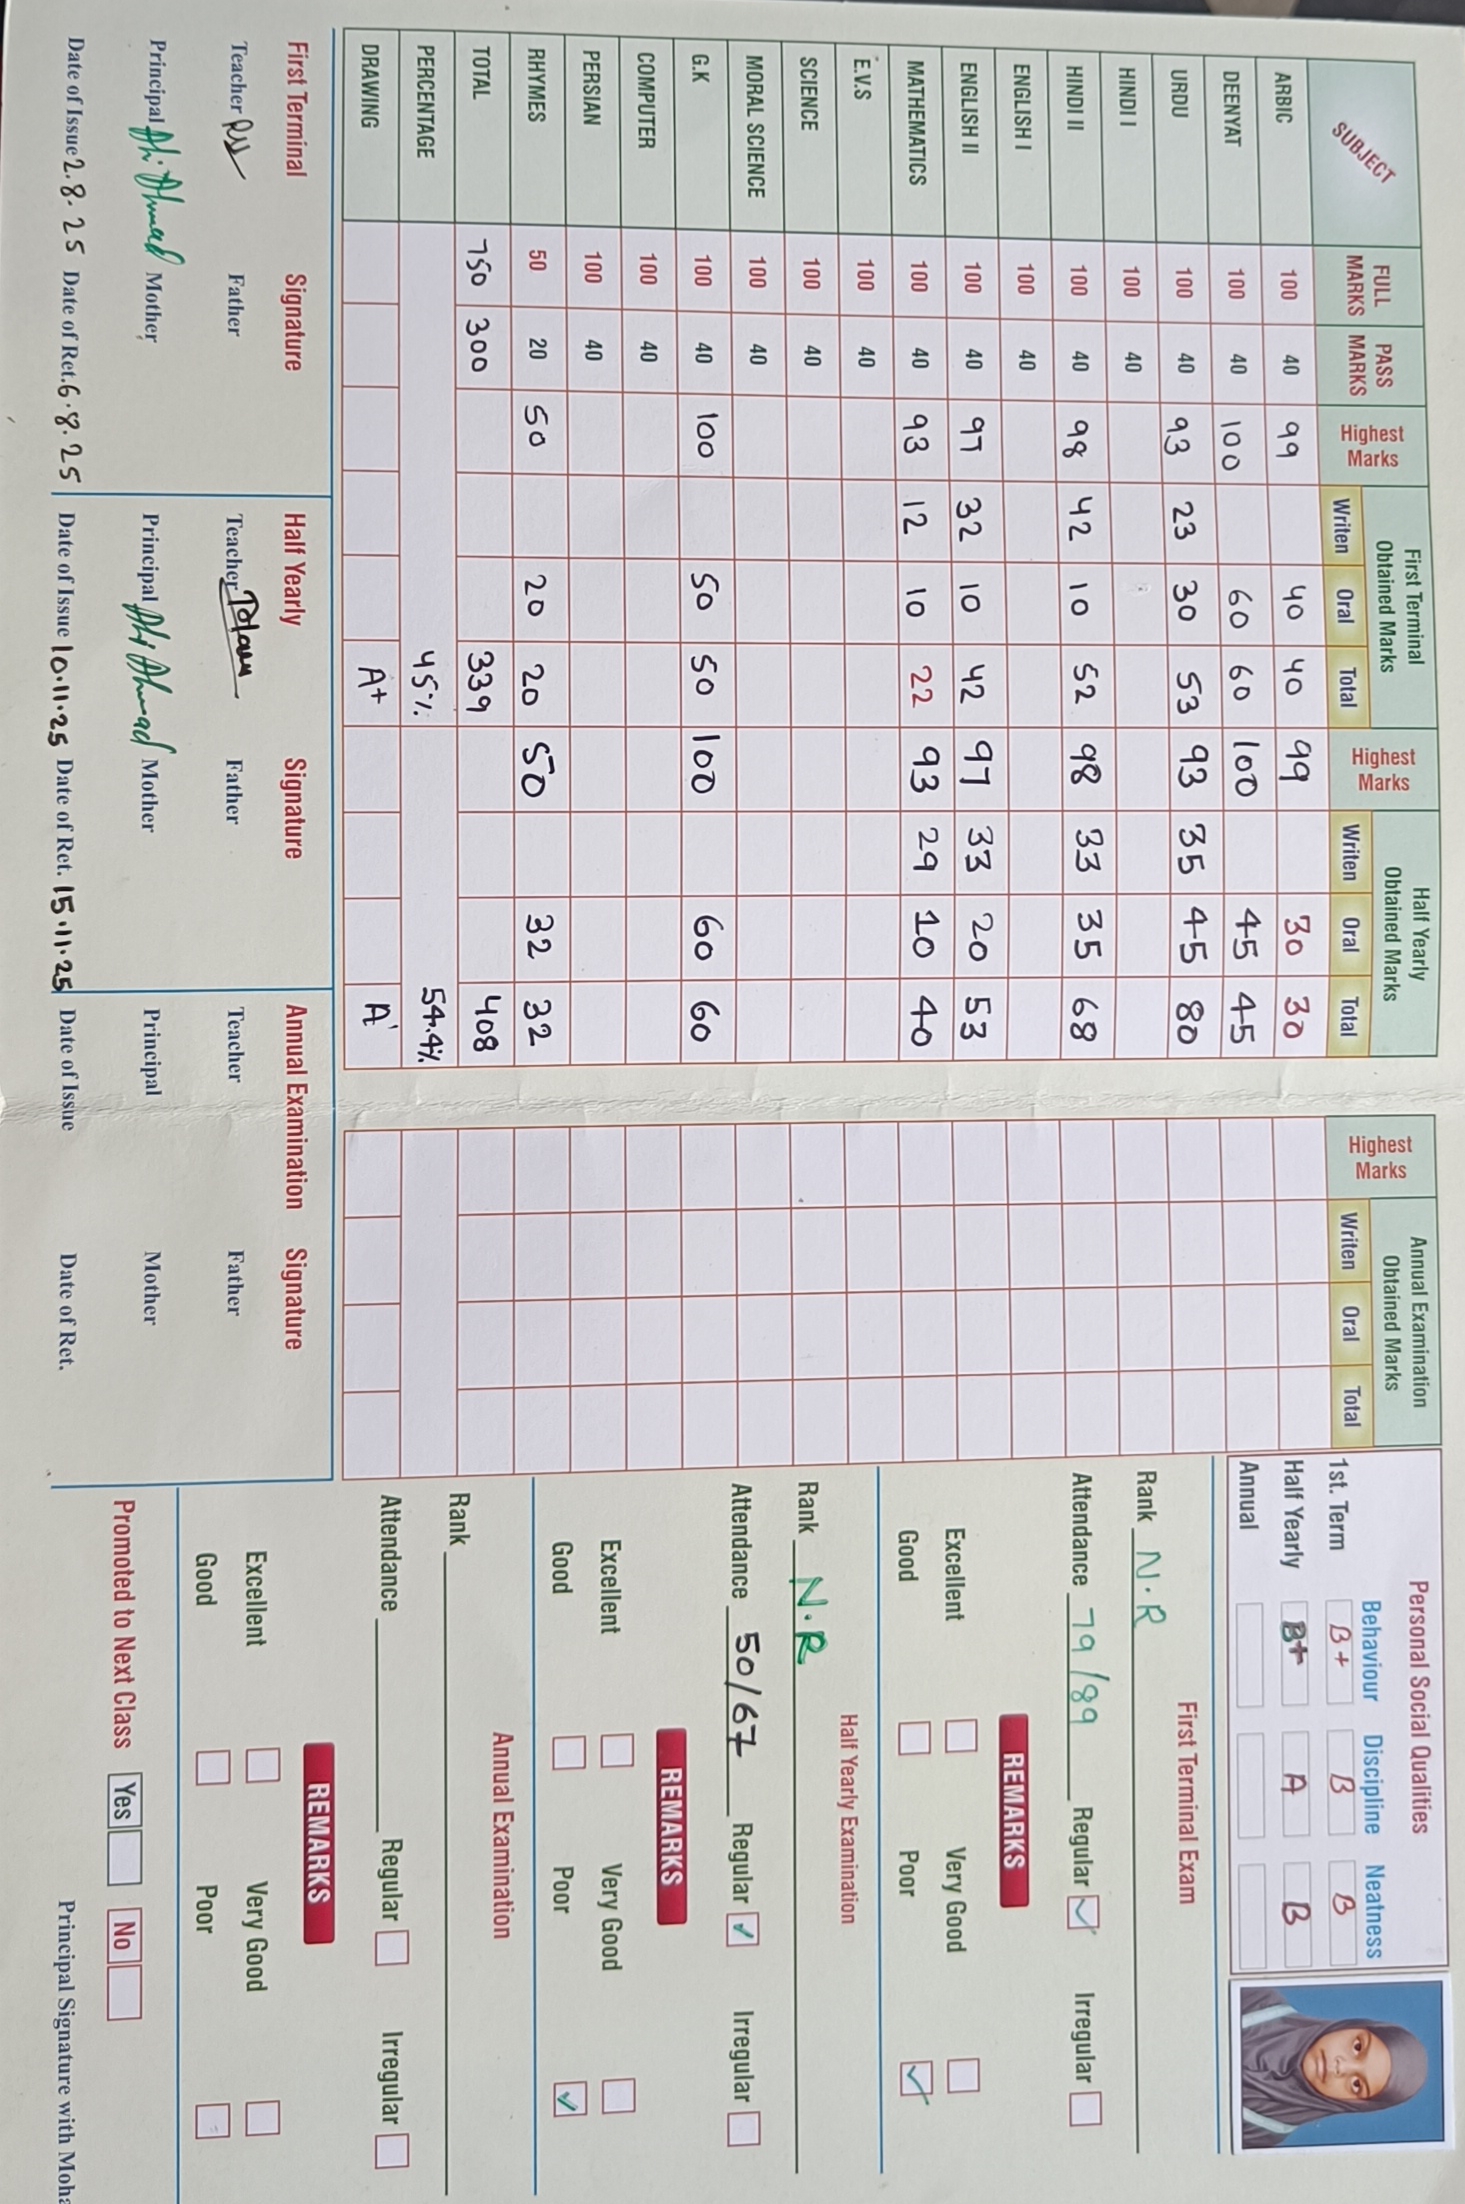 SUBJECT FULL MARKS PASS MARKS Highest Marks First Terminal Obtained Marks Writen Oral Total Highest Marks Half Yearly Obtained Marks Writen Oral Total Highest Marks Annual Examination Obtained Marks Writen Oral Total
ARBIC 100 40 99 40 40 99 30 30
DEENYAT 100 40 100 60 60 100 45 45
URDU 100 40 93 23 30 53 93 35 45 80
HINDI I 100 40
HINDI II 100 40 98 42 10 52 98 33 35 68
ENGLISH I 100 40
ENGLISH II 100 40 97 32 10 42 97 33 20 53
MATHEMATICS 100 40 93 12 10 22 93 29 10 40
E.V.S 100 40
SCIENCE 100 40
MORAL SCIENCE 100 40
G.K 100 40 100 50 50 100 60 60
COMPUTER 100 40
PERSIAN 100 40
RHYMES 50 20 50 20 20 50 32 32
TOTAL 750 300 339 408
PERCENTAGE 45% 54.4%
DRAWING A+ A
First Terminal Signature Half Yearly Signature Annual Examination Signature
Teacher Father Teacher Father Teacher Father
Principal Ali Ahmad Mother Principal Ali Ahmad Mother Principal Mother
Date of Issue 2.8.25 Date of Ret. 6.8.25 Date of Issue 10.11.25 Date of Ret. 15.11.25 Date of Issue Date of Ret.
Personal Social Qualities
Behaviour Discipline Neatness
1st. Term B+ B B
Half Yearly B+ A B
Annual
First Terminal Exam
Rank N.R
Attendance 79/89 Regular ✓ Irregular
REMARKS
Excellent Very Good
Good Poor ✓
Half Yearly Examination
Rank N.R
Attendance 50/67 Regular ✓ Irregular
REMARKS
Excellent Very Good
Good Poor ✓
Annual Examination
Rank
Attendance Regular Irregular
REMARKS
Excellent Very Good
Good Poor
Promoted to Next Class Yes No
Principal Signature with